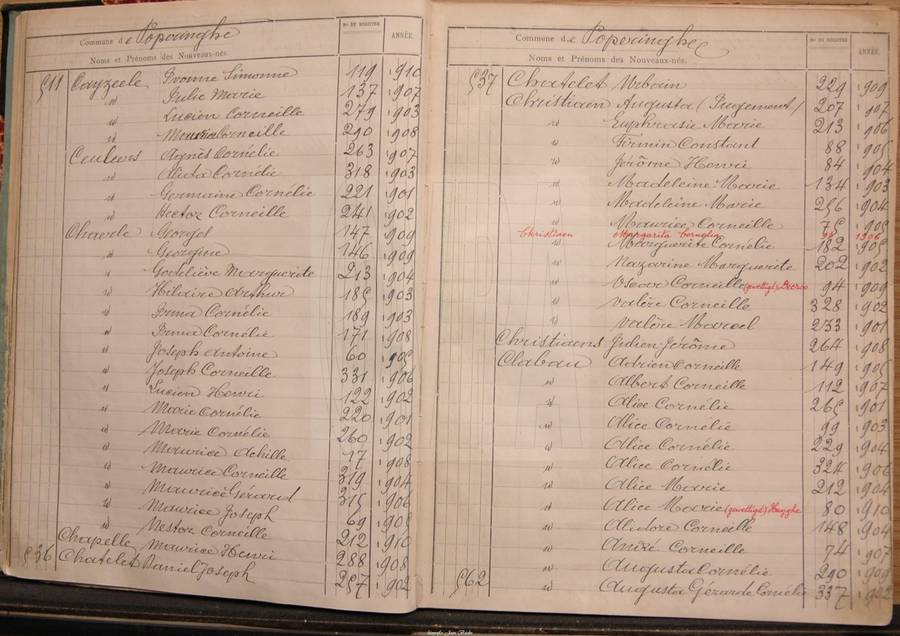 Commune de Poperinghe
Noms et Prénoms des Nouveaux-nés.
Nº DE REGISTRE
ANNÉE.
511 Cayzeele Yvonne Simonne 119 1910
" Julie Marie 137 1907
" Lucien Corneille 279 1903
" Maria Corneille 290 1908
Ceulers Agnès Cornélie 263 1907
" Alida Cornélie 318 1903
" Germaine Cornélie 221 1901
" Hector Corneille 241 1902
Chaerle Georgel 147 1909
" Georgine 146 1909
" Godeliève Marguerite 213 1904
" Hilaire Arthur 185 1903
" Irma Cornélie 189 1903
" Irma Cornélie 171 1908
" Joseph Antoine 60 1905
" Joseph Corneille 331 1906
" Lucien Henri 122 1902
" Marie Cornélie 220 1901
" Marie Cornélie 260 1902
" Maurice Achille 17 1908
" Maurice Corneille 319 1904
" Maurice Gérard 315 1906
" Maurice Joseph 69 1905
" Nestor Corneille 212 1910
Chapelle Maurice Henri 288 1908
536 Chatelet Daniel Joseph 257 1902
Commune de Poperinghe
Noms et Prénoms des Nouveaux-nés.
Nº DE REGISTRE
ANNÉE.
537 Chatelet Urbain 229 1909
Christiaen Augusta (Jugement) 207 1907
" Euphrasie Marie 213 1906
" Firmin Constant 88 1905
" Jérôme Henri 84 1904
" Madeleine Marie 134 1903
" Madeleine Marie 256 1904
" Maurice Corneille 75 1905
Christiaen Margarita Cornelia
" Marguerite Cornélie 182 1905
" Nazarine Marguerite 202 1902
" Oscar Corneille (gewettigd) 94 1909
" Valère Corneille 328 1902
" Valère Marcel 233 1901
Christiaens Julien Jérôme 264 1908
Clabau Adrien Corneille 149 1905
" Albert Corneille 112 1907
" Alice Cornélie 265 1901
" Alice Cornélie 99 1903
" Alice Cornélie 229 1904
" Alice Cornélie 324 1906
" Alice Marie 212 1904
" Alice Marie (gewettigd) Huyghe 80 1910
" Corneille 148 1904
" André Corneille 74 1907
" Augusta Cornélie 290 1909
562 " Augusta Gérarde Cornélie 337 1902